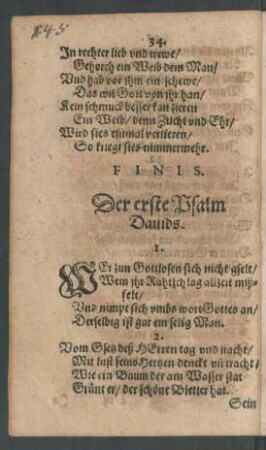 x45
34.
In rechter lieb vnd trewe/
Gehorch ein Weib dem Man/
Vnd hab vor jhm ein schewe/
Das wil Gott von jhr han/
Kein schmuck besser kan zieren
Ein Weib/ denn Zucht vnd Ehr/
Wird sies einmal verlieren/
So kriegt sies nimmermehr.
F I N I S.
Der erste Psalm
Dauids.
1.
WEr zun Gottlosen sich nicht gselt/
Wem jhr Rahtschlag allzeit miß-
felt/
Vnd nimpt sich vmbs wort Gottes an/
Derselbig ist gar ein selig Man.
2.
Vom Gsetz deß HErren tag vnd nacht/
Mit lust seins Hertzen denckt vñ tracht/
Wie ein Baum der am Wasser stat
Grünt er/ der schöne Bletter hat.
Sein